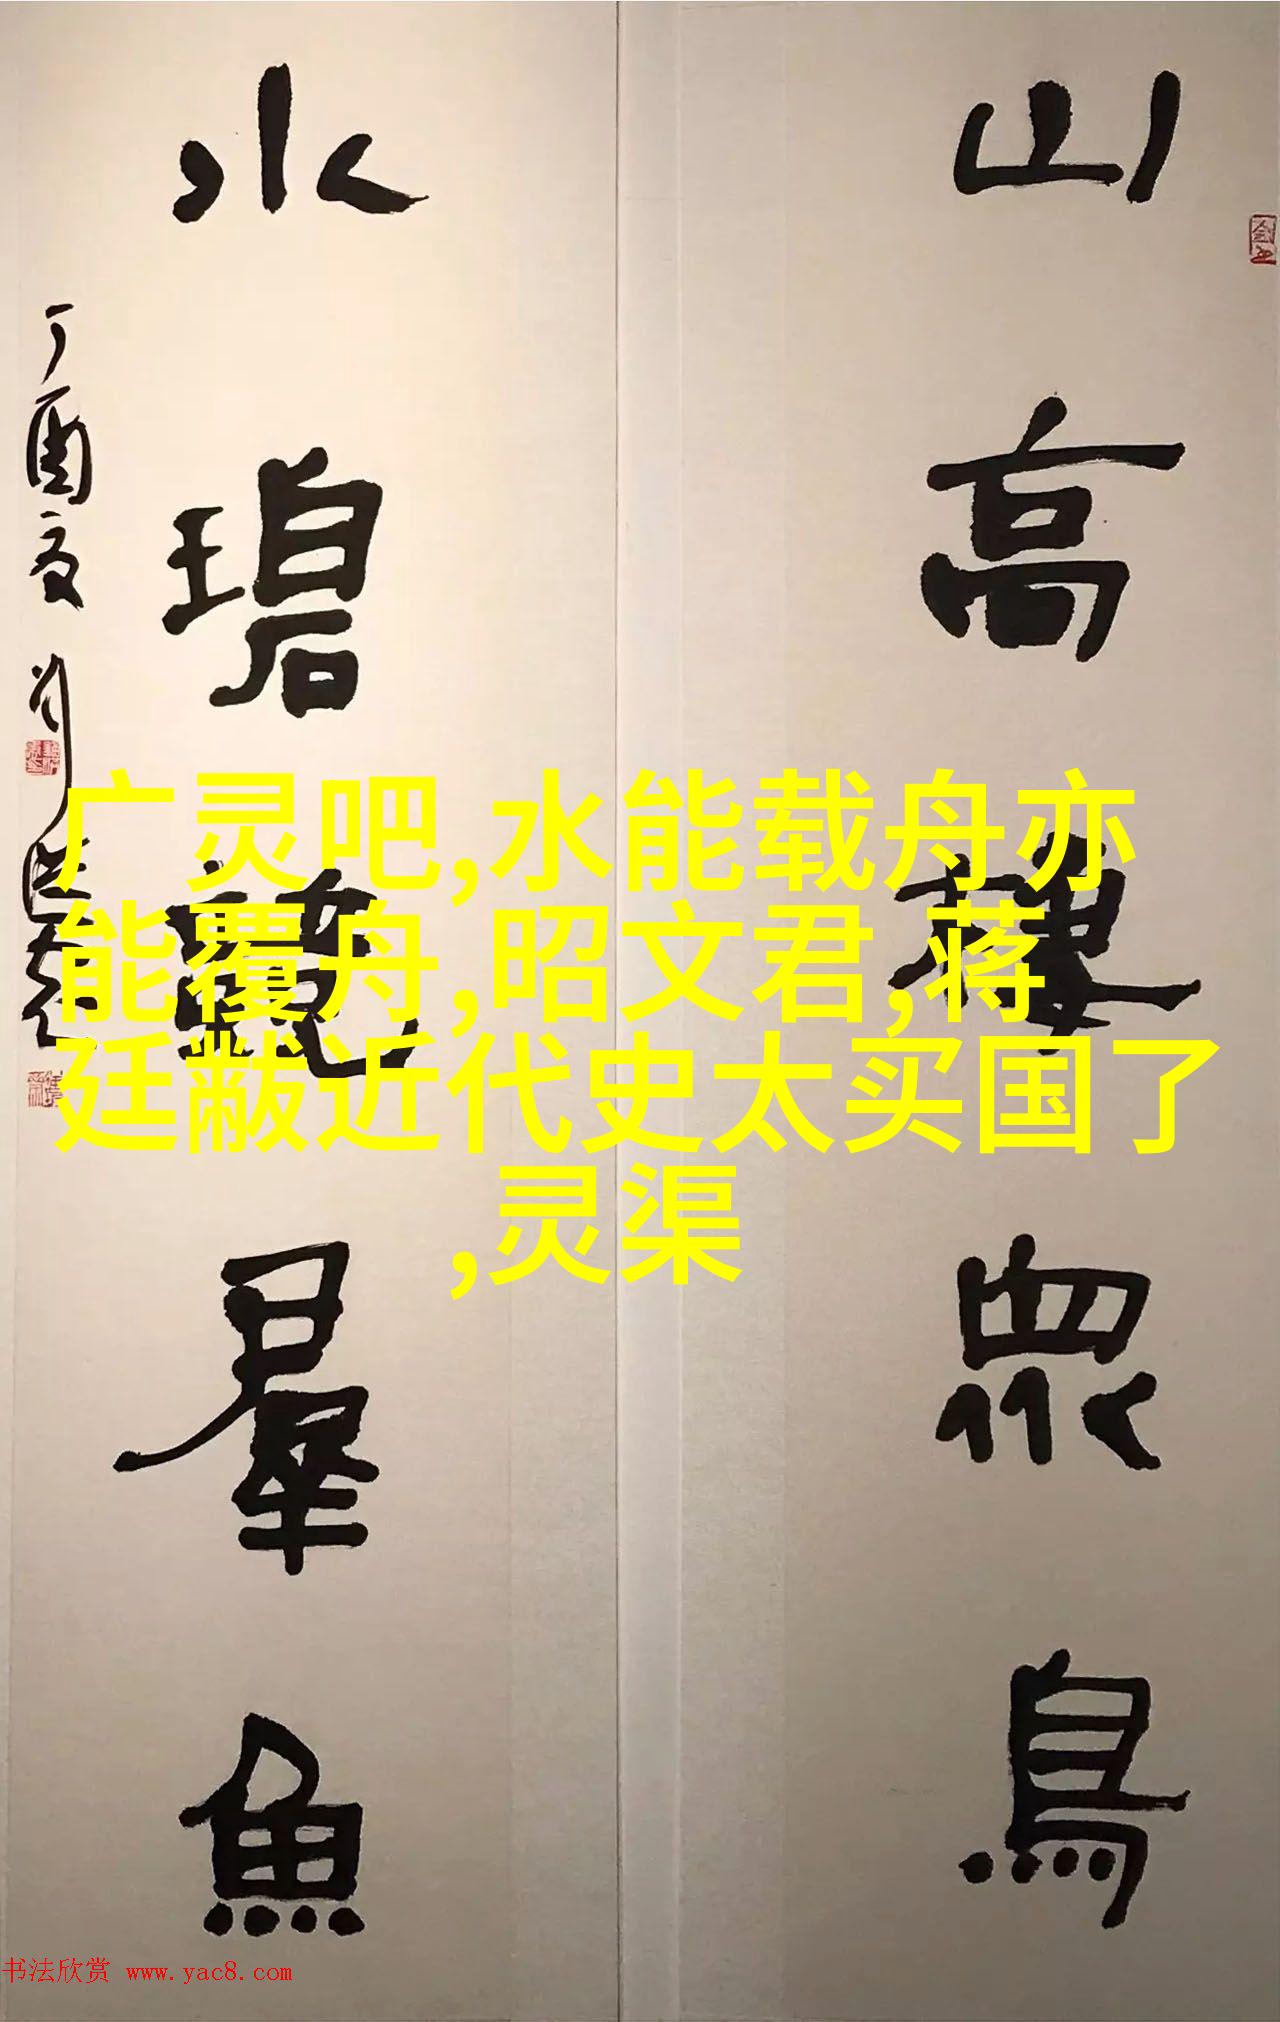 山高棲眾鳥
水碧觀群魚
丁酉夏
广灵吧,水能载舟亦
能覆舟,昭文君,蒋
廷黻近代史太买国了
,灵渠
书法欣赏 www.yac8.com